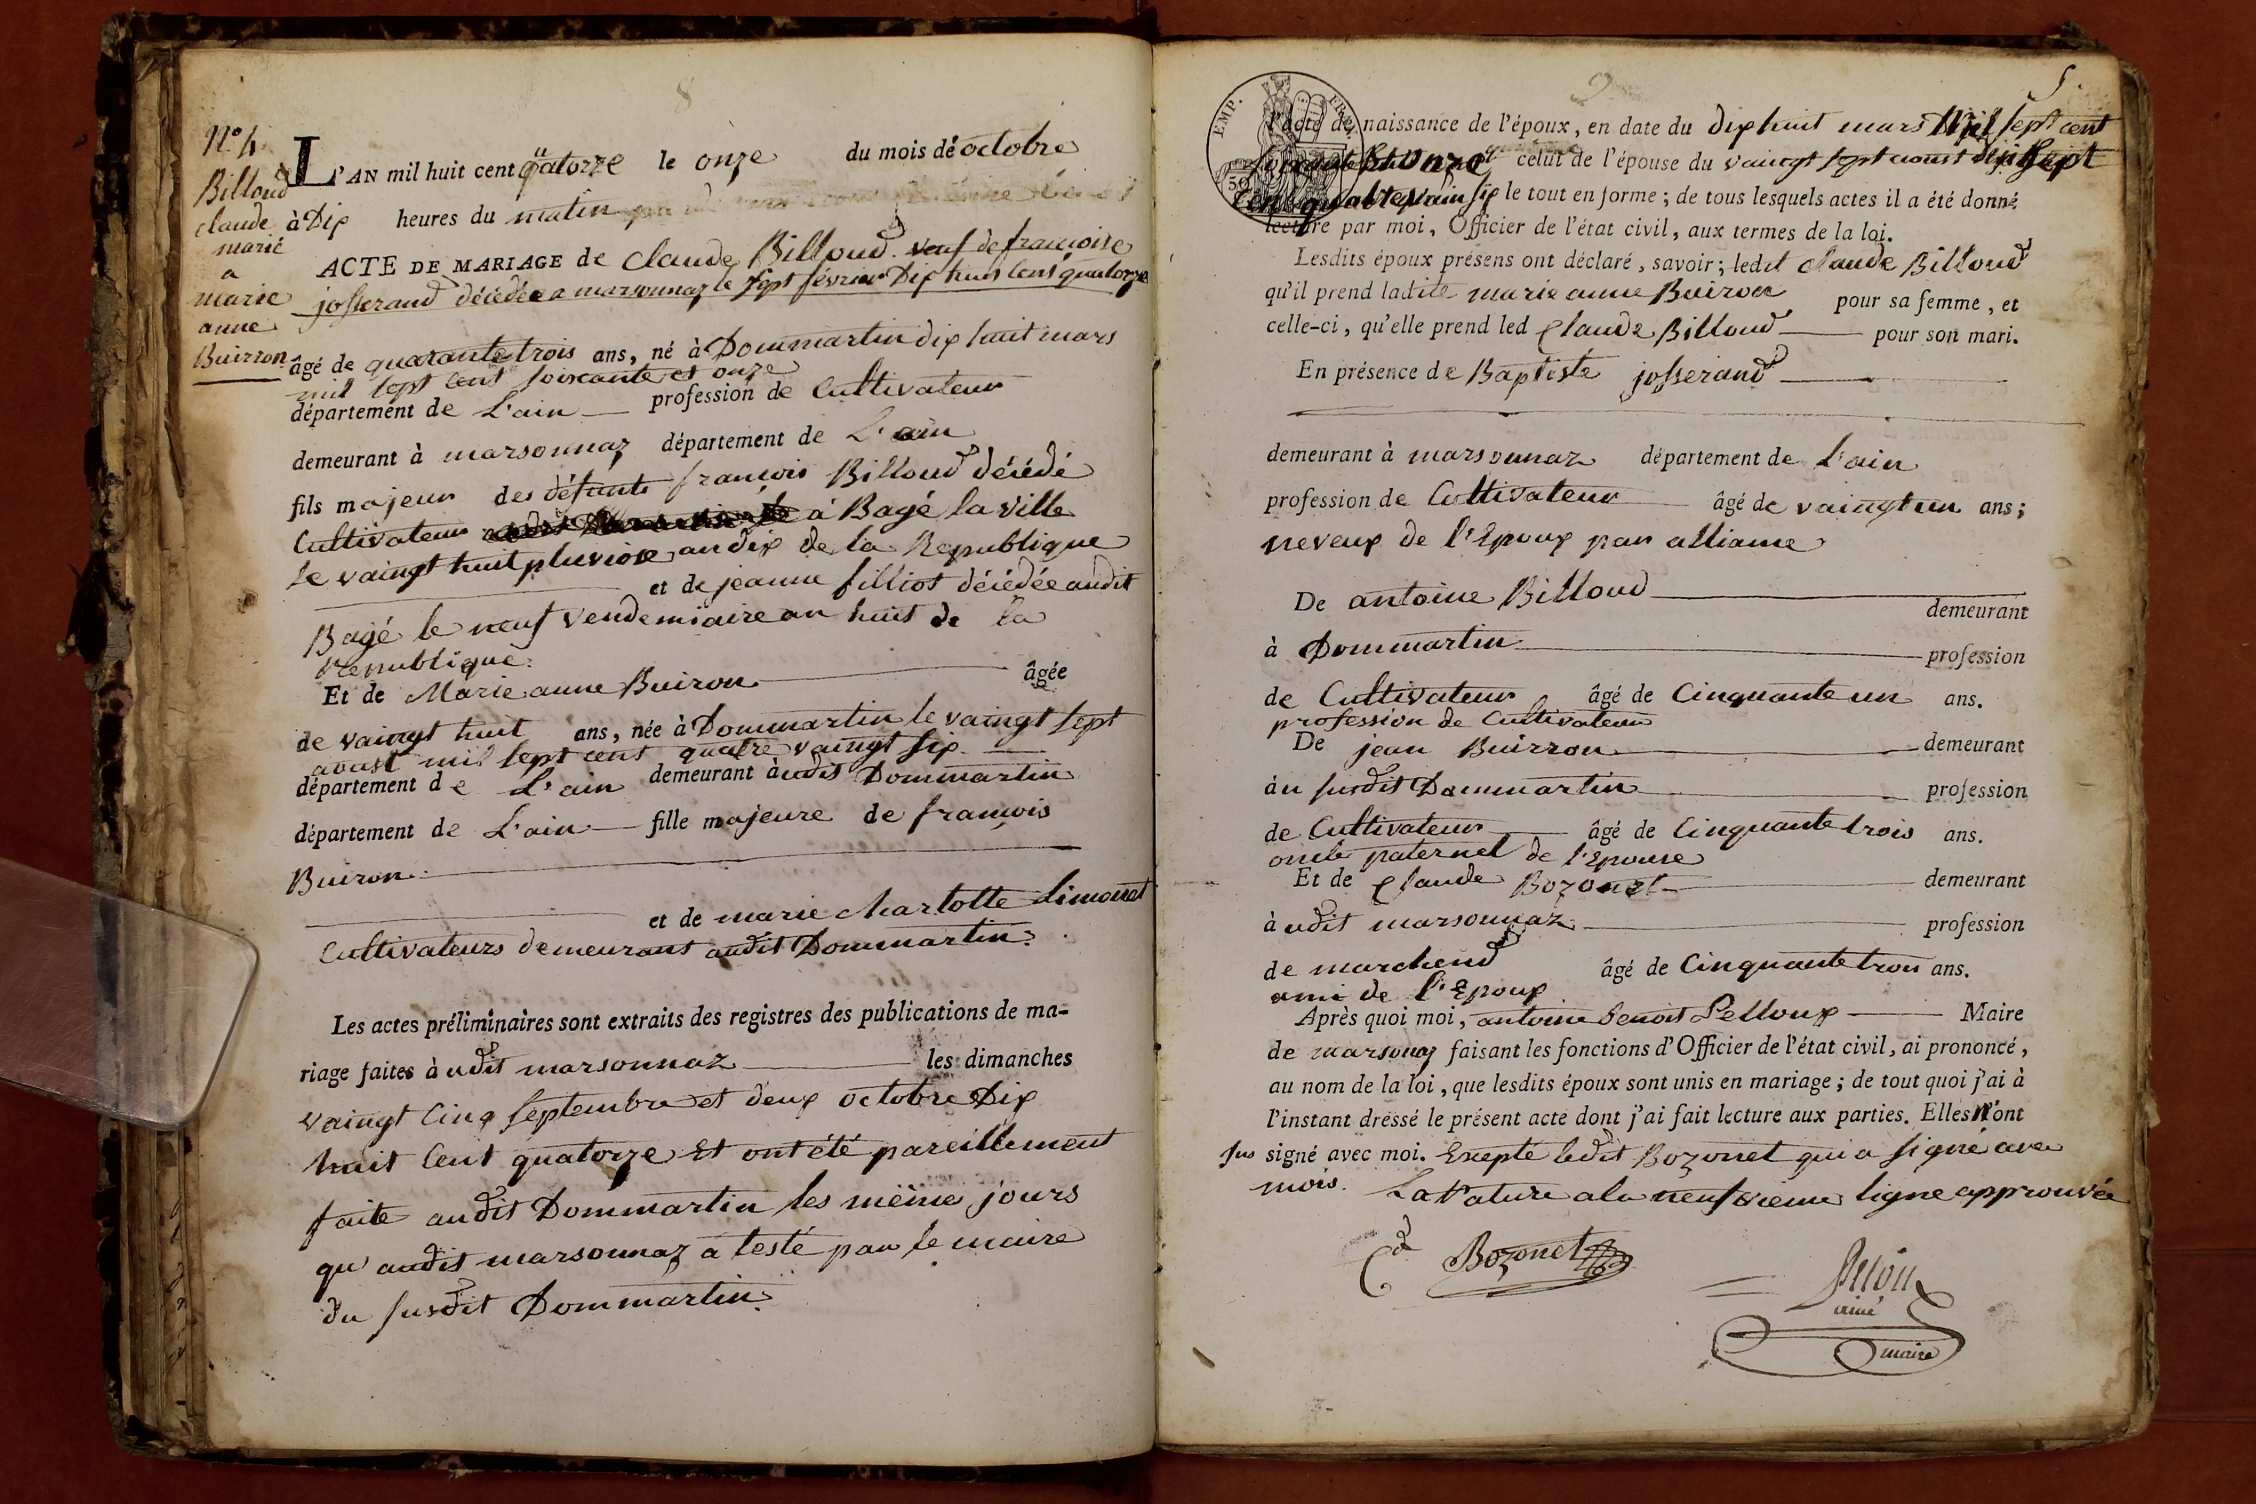 8
N° 4.
Billoud
claude
marié
a
marie
anne
Buirron
L'AN mil huit cent quatorze le onze du mois de octobre
à Dix heures du matin
ACTE DE MARIAGE de claude Billoud veuf de françoise
josserand décédée a marsonnaz le sept février Dix huit Cent quatorze
âgé de quarante trois ans, né à Dommartin dix huit mars
mil sept cent soixante et onze
département de L'ain profession de Cultivateur
demeurant à marsonnaz département de L'ain
fils majeur des défunts françois Billoud décédé
Cultivateur à Bagé la ville
le vaingt huit pluviose an dix de la Republique
et de jeanne filliot décédée audit
Bagé le neuf vendemiaire an huit de la
Republique.
Et de Marie anne Buiron âgée
de vaingt huit ans, née à Dommartin le vaingt sept
aoust mil sept cent quatre vaingt six
département de L'ain demeurant àudit Dommartin
département de L'ain fille majeure de françois
Buiron.
et de marie charlotte Limonet
Cultivateurs demeurant audit Dommartin.
Les actes préliminaires sont extraits des registres des publications de ma-
riage faites à udit marsonnaz les dimanches
vaingt Cinq septembre et deux octobre Dix
huit Cent quatorze Et ont été pareillement
faite audit Dommartin les même jours
qu'audit marsonnaz a testé par le maire
du susdit Dommartin.
9
5
EMP. FRAN.
l'acte de naissance de l'époux, en date du dix huit mars Mil sept cent
soixante et onze celui de l'épouse du vaingt sept aoust dix sept
Cent quatre vain six le tout en forme ; de tous lesquels actes il a été donné
lecture par moi, Officier de l'état civil, aux termes de la loi.
Lesdits époux présens ont déclaré, savoir ; ledit claude Billoud
qu'il prend ladite marie anne Buiron pour sa femme, et
celle-ci, qu'elle prend led Claude Billoud pour son mari.
En présence de Baptiste josserand
demeurant à marsonnaz département de L'ain
profession de Cultivateur âgé de vaingt un ans ;
neveux de l'Epoux par alliance
De antoine Billoud demeurant
à Dommartin profession
de Cultivateur âgé de Cinquante un ans.
profession de Cultivateur
De jean Buirron demeurant
àu susdit Dommartin profession
de Cultivateur âgé de Cinquante trois ans.
oncle paternel de l'Epouse
Et de Claude Bozonet demeurant
à udit marsonnaz profession
de marchend âgé de Cinquante trois ans.
ami de l'Epoux
Après quoi moi, antoine benoit Pelloux Maire
de marsonaz faisant les fonctions d'Officier de l'état civil, ai prononcé,
au nom de la loi, que lesdits époux sont unis en mariage ; de tout quoi j'ai à
l'instant dressé le présent acte dont j'ai fait lecture aux parties. Elles n'ont
sus signé avec moi. Excepté ledit Bozonet qui a signé avec
mois. La rature a la neufvieme ligne approuvée
Cd Bozonet
ainé
maire